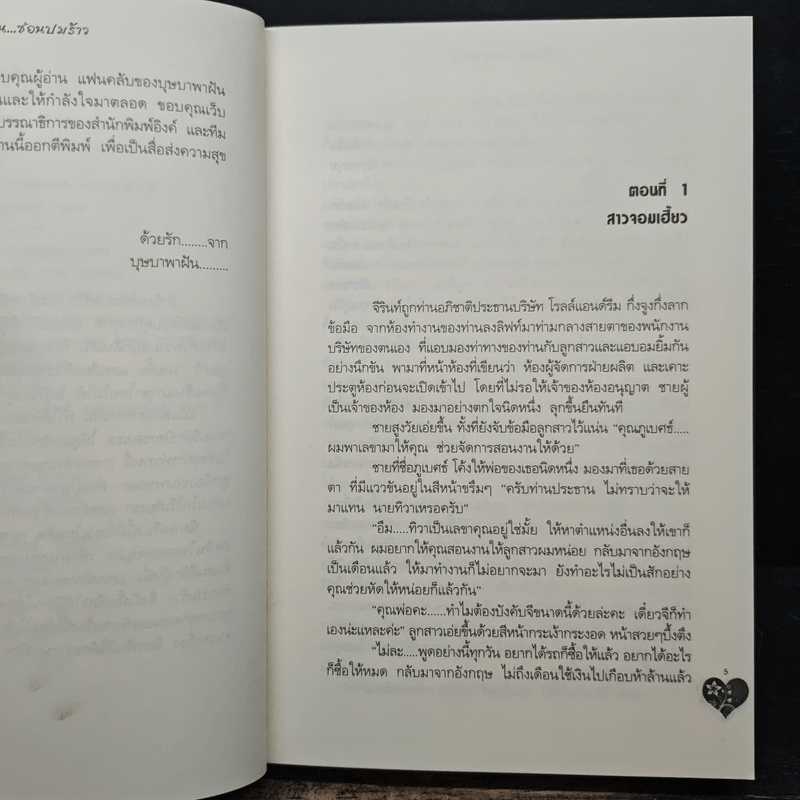 น...ซ่อนปมร้าว
บคุณผู้อ่าน แฟนคลับของบุษบาพาฝัน
นและให้กำลังใจมาตลอด ขอบคุณเว็บ
บรรณาธิการของสำนักพิมพ์อิงค์ และทีม
านนี้ออกตีพิมพ์ เพื่อเป็นสื่อส่งความสุข
ด้วยรัก........จาก
บุษบาพาฝัน.........
ตอนที่ 1
สาวจอมเฮี้ยว
จีรินท์ถูกท่านอภิชาติประธานบริษัท โรลล์แอนด์รีม กึ่งจูงกึ่งลาก
ข้อมือ จากห้องทำงานของท่านลงลิฟท์มาท่ามกลางสายตาของพนักงาน
บริษัทของตนเอง ที่แอบมองท่าทางของท่านกับลูกสาวและแอบอมยิ้มกัน
อย่างนึกขัน พามาที่หน้าห้องที่เขียนว่า ห้องผู้จัดการฝ่ายผลิต และเคาะ
ประตูห้องก่อนจะเปิดเข้าไป โดยที่ไม่รอให้เจ้าของห้องอนุญาต ชายผู้
เป็นเจ้าของห้อง มองมาอย่างตกใจนิดหนึ่ง ลุกขึ้นยืนทันที
ชายสูงวัยเอ่ยขึ้น ทั้งที่ยังจับข้อมือลูกสาวไว้แน่น “คุณภูเบศธ์.....
ผมพาเลขามาให้คุณ ช่วยจัดการสอนงานให้ด้วย”
ชายที่ชื่อภูเบศธ์ โค้งให้พ่อของเธอนิดหนึ่ง มองมาที่เธอด้วยสาย
ตา ที่มีแววขันอยู่ในสีหน้าขรึมๆ “ครับท่านประธาน ไม่ทราบว่าจะให้
มาแทน นายทิวาเหรอครับ”
“อืม.....ทิวาเป็นเลขาคุณอยู่ใช่มั้ย ให้หาตำแหน่งอื่นลงให้เขาก็
แล้วกัน ผมอยากให้คุณสอนงานให้ลูกสาวผมหน่อย กลับมาจากอังกฤษ
เป็นเดือนแล้ว ให้มาทำงานก็ไม่อยากจะมา ยังทำอะไรไม่เป็นสักอย่าง
คุณช่วยหัดให้หน่อยก็แล้วกัน”
“คุณพ่อคะ......ทำไมต้องบังคับจีขนาดนี้ด้วยล่ะคะ เดี๋ยวจีก็ทำ
เองน่ะแหละค่ะ” ลูกสาวเอ่ยขึ้นด้วยสีหน้ากระเง้ากระงอด หน้าสวยๆบึ้งตึง
“ไม่ละ.....พูดอย่างนี้ทุกวัน อยากได้รถก็ซื้อให้แล้ว อยากได้อะไร
ก็ซื้อให้หมด กลับมาจากอังกฤษ ไม่ถึงเดือนใช้เงินไปเกือบห้าล้านแล้ว
5